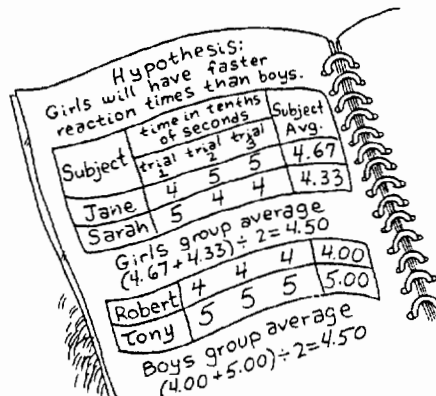 Hypothesis:
Girls will have faster
reaction times than boys.
Subject time in tenths of seconds Subject Avg.
trial 1 trial 2 trial 3
Jane 4 5 5 4.67
Sarah 5 4 4 4.33
Girls group average
(4.67+4.33)÷2=4.50
Robert 4 4 4 4.00
Tony 5 5 5 5.00
Boys group average
(4.00+5.00)÷2=4.50